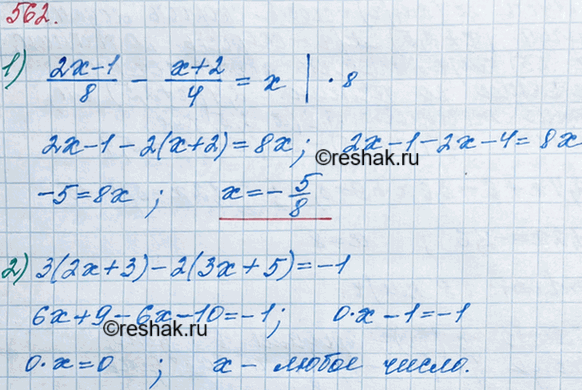 562.
1) (2x-1)/8 - (x+2)/4 = x | · 8
2x-1-2(x+2)=8x; 2x-1-2x-4=8x
©reshak.ru
-5=8x; x=-5/8
2) 3(2x+3)-2(3x+5)=-1
6x+9-6x-10=-1; 0·x-1=-1
©reshak.ru
0·x=0; x- любое число.